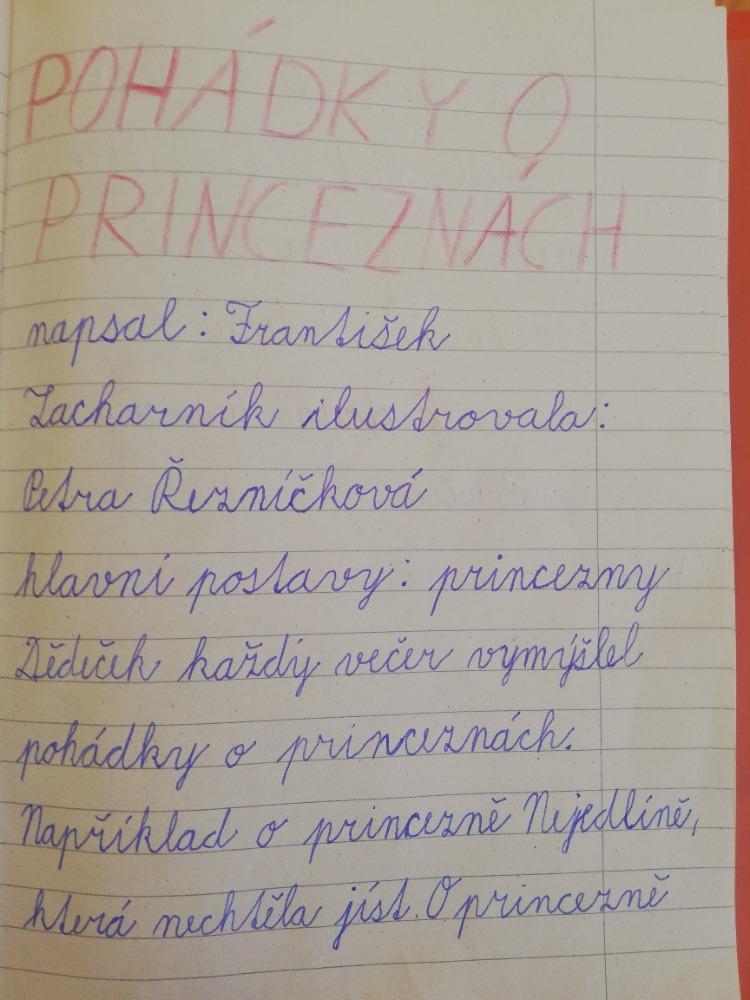 POHÁDKY O
PRINCEZNÁCH
napsal: František
Zacharník ilustrovala:
Petra Řezníčková
hlavní postavy: princezny
Dědeček každý večer vymýšlel
pohádky o princeznách.
Například o princezně Nejedlíně,
která nechtěla jíst. O princezně